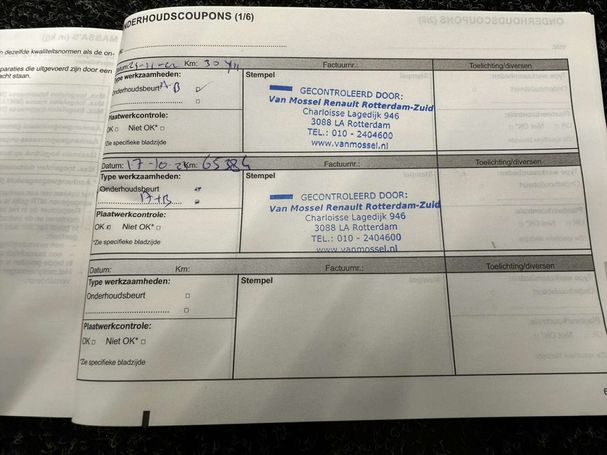 NDERHOUDSCOUPONS (1/6)
n dezelfde kwaliteitsnormen als de on-
paraties die uitgevoerd zijn door een
acht staan.
Datum: Km: Factuurnr.: Toelichting/diversen
Type werkzaamheden: Stempel
Onderhoudsbeurt A-B
GECONTROLEERD DOOR:
Van Mossel Renault Rotterdam-Zuid
Charloisse Lagedijk 946
3088 LA Rotterdam
TEL.: 010 - 2404600
www.vanmossel.nl
Plaatwerkcontrole:
OK Niet OK*
*Ze specifieke bladzijde
Datum: 17-10- Km: Factuurnr.: Toelichting/diversen
Type werkzaamheden: Stempel
Onderhoudsbeurt
A+B
GECONTROLEERD DOOR:
Van Mossel Renault Rotterdam-Zuid
Charloisse Lagedijk 946
3088 LA Rotterdam
TEL.: 010 - 2404600
www.vanmossel.nl
Plaatwerkcontrole:
OK Niet OK*
*Ze specifieke bladzijde
Datum: Km: Factuurnr.: Toelichting/diversen
Type werkzaamheden: Stempel
Onderhoudsbeurt
Plaatwerkcontrole:
OK Niet OK*
*Ze specifieke bladzijde